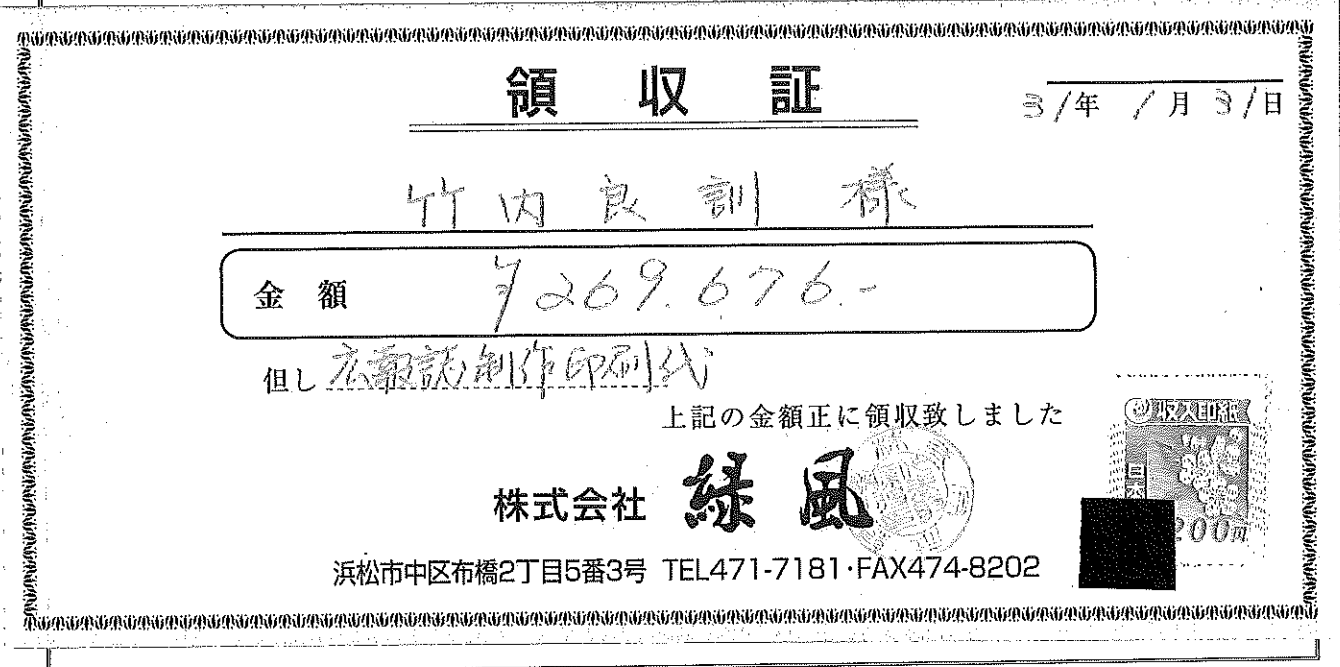 領収証
31年 1月 31日
竹内良訓 様
金額 ¥269.676.-
但し 広報誌制作印刷代
上記の金額正に領収致しました
収入印紙
日本
200円
株式会社 緑風
浜松市中区布橋2丁目5番3号 TEL471-7181・FAX474-8202